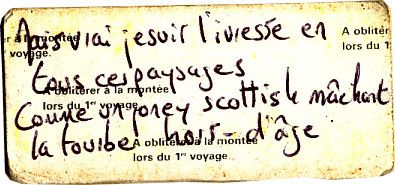 Mais vrai je suis l'ivresse en
er à la montée
voyage.
A oblitér
lors du 1
tous ces paysages
A oblitérer à la montée
lors du 1er voyage
Comme un poney scottish mâchant
la tourbe hors-d'âge
A oblitérer à la montée
lors du 1er voyage.